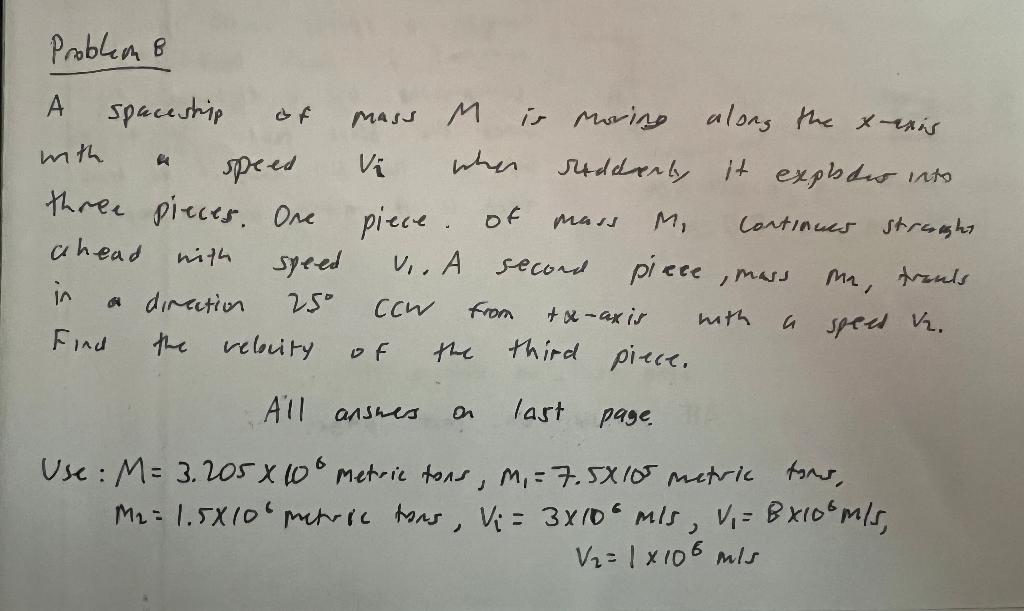 Problem 8
A spaceship of mass M is moving along the x-axis
with a speed Vi when suddenly it explodes into
three pieces. One piece. of mass M₁ continues straight
ahead with speed V₁. A second piece, mass M₂, travels
in a direction 25° CCW from +x-axis with a speed V₂.
Find the velocity of the third piece.
All answers on last page.
Use: M = 3.205 X 10⁶ metric tons, M₁ = 7.5X10⁵ metric tons,
M₂ = 1.5X10⁶ metric tons, Vi = 3X10⁶ m/s, V₁ = 8X10⁶ m/s,
V₂ = 1 X 10⁶ m/s